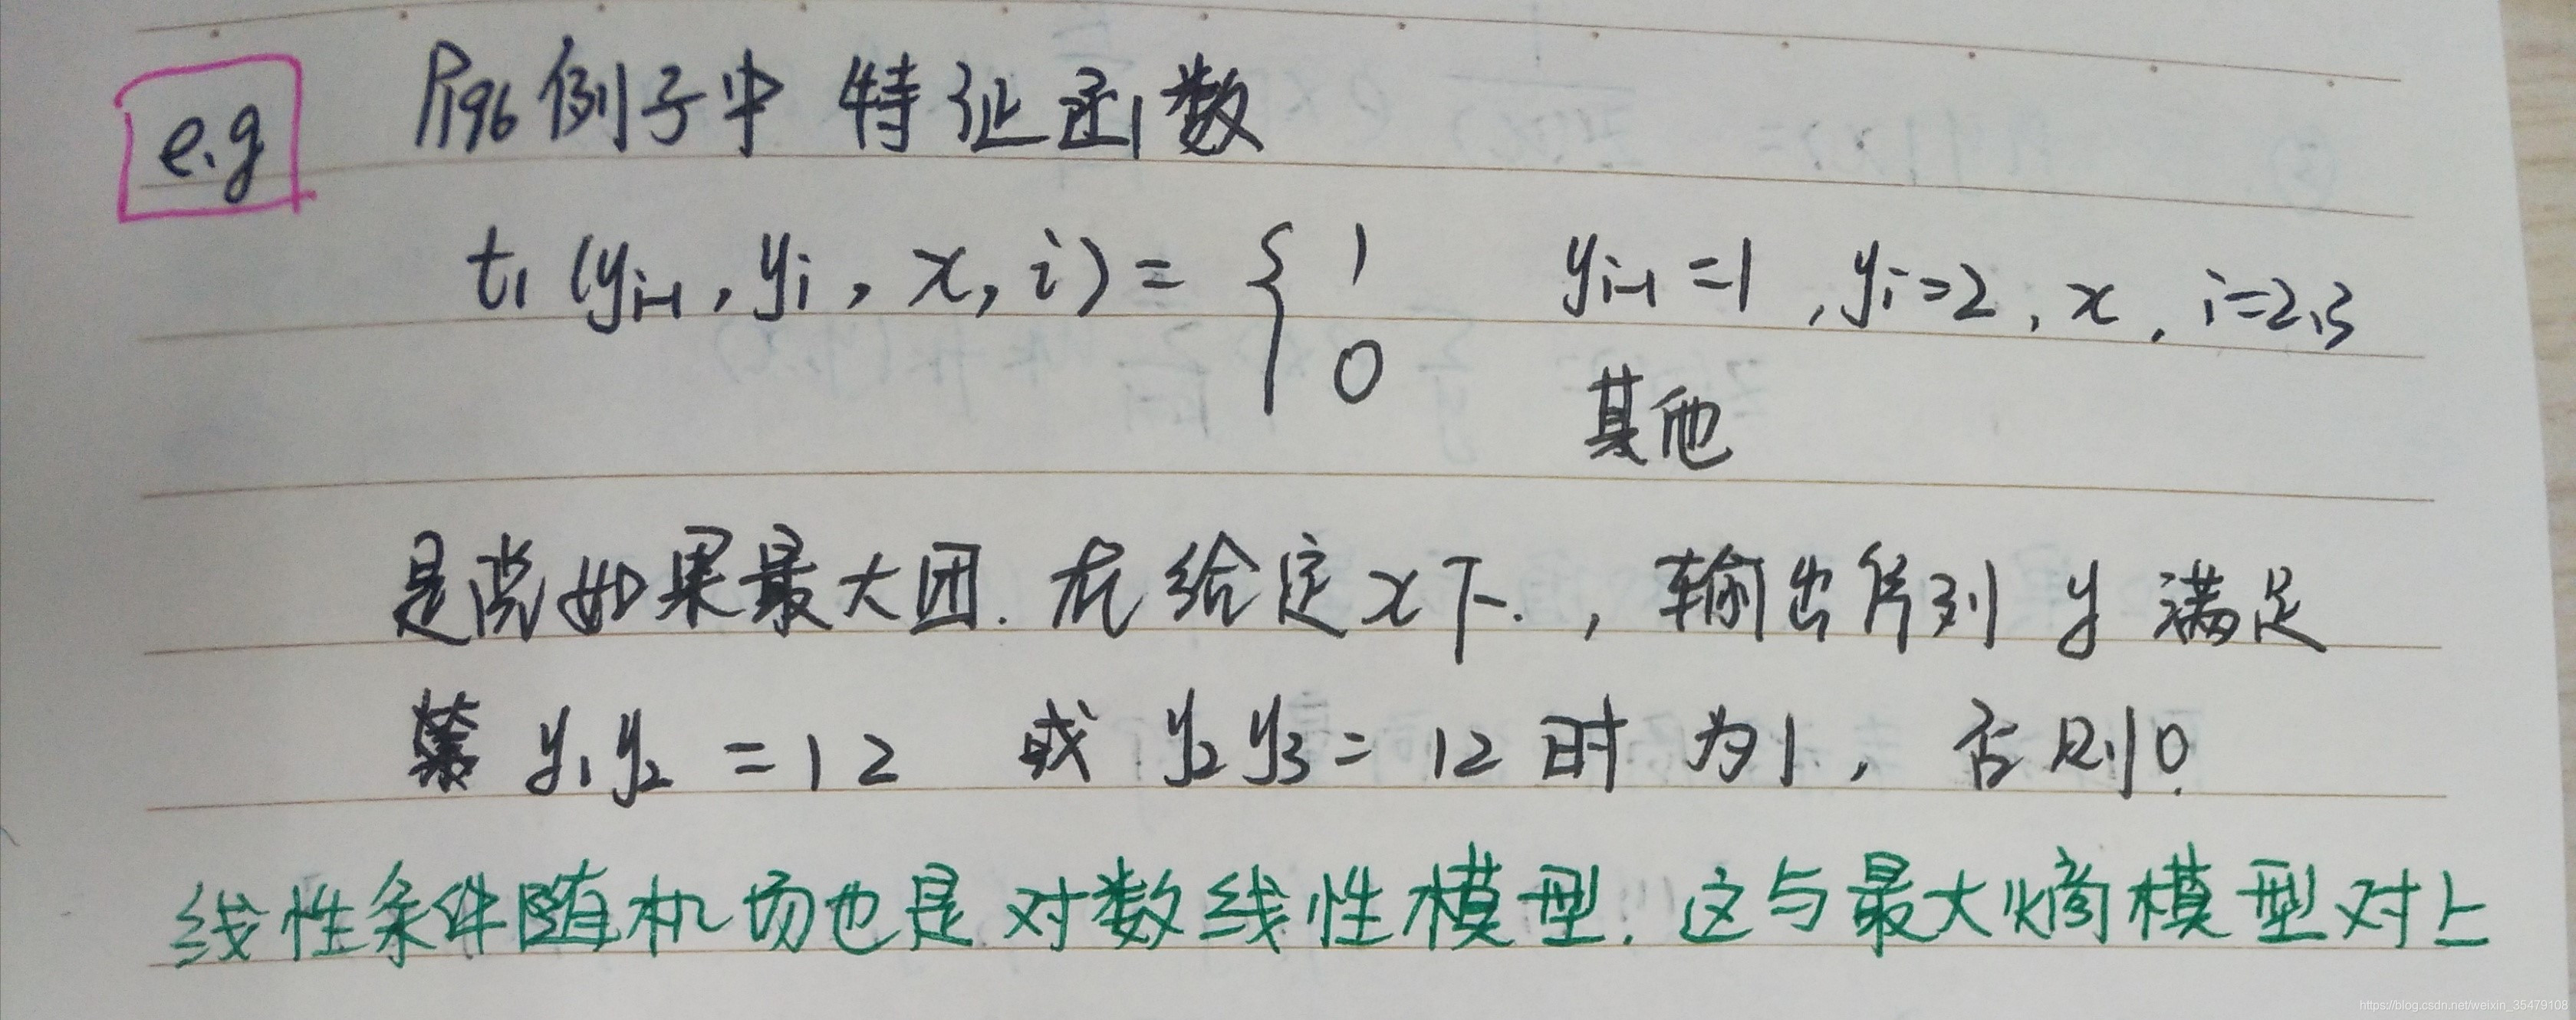 e.g P196例子中 特征函数
t1 (yi-1, yi, x, i) = { 1 yi-1 =1, yi=2, x, i=2,3
0 其他
是说如果最大团. 在给定x下., 输出序列 y 满足
y1y2 = 12 或 y2y3 = 12 时 为1, 否则0.
线性条件随机场也是对数线性模型. 这与最大熵模型对上
https://blog.csdn.net/weixin_35479108